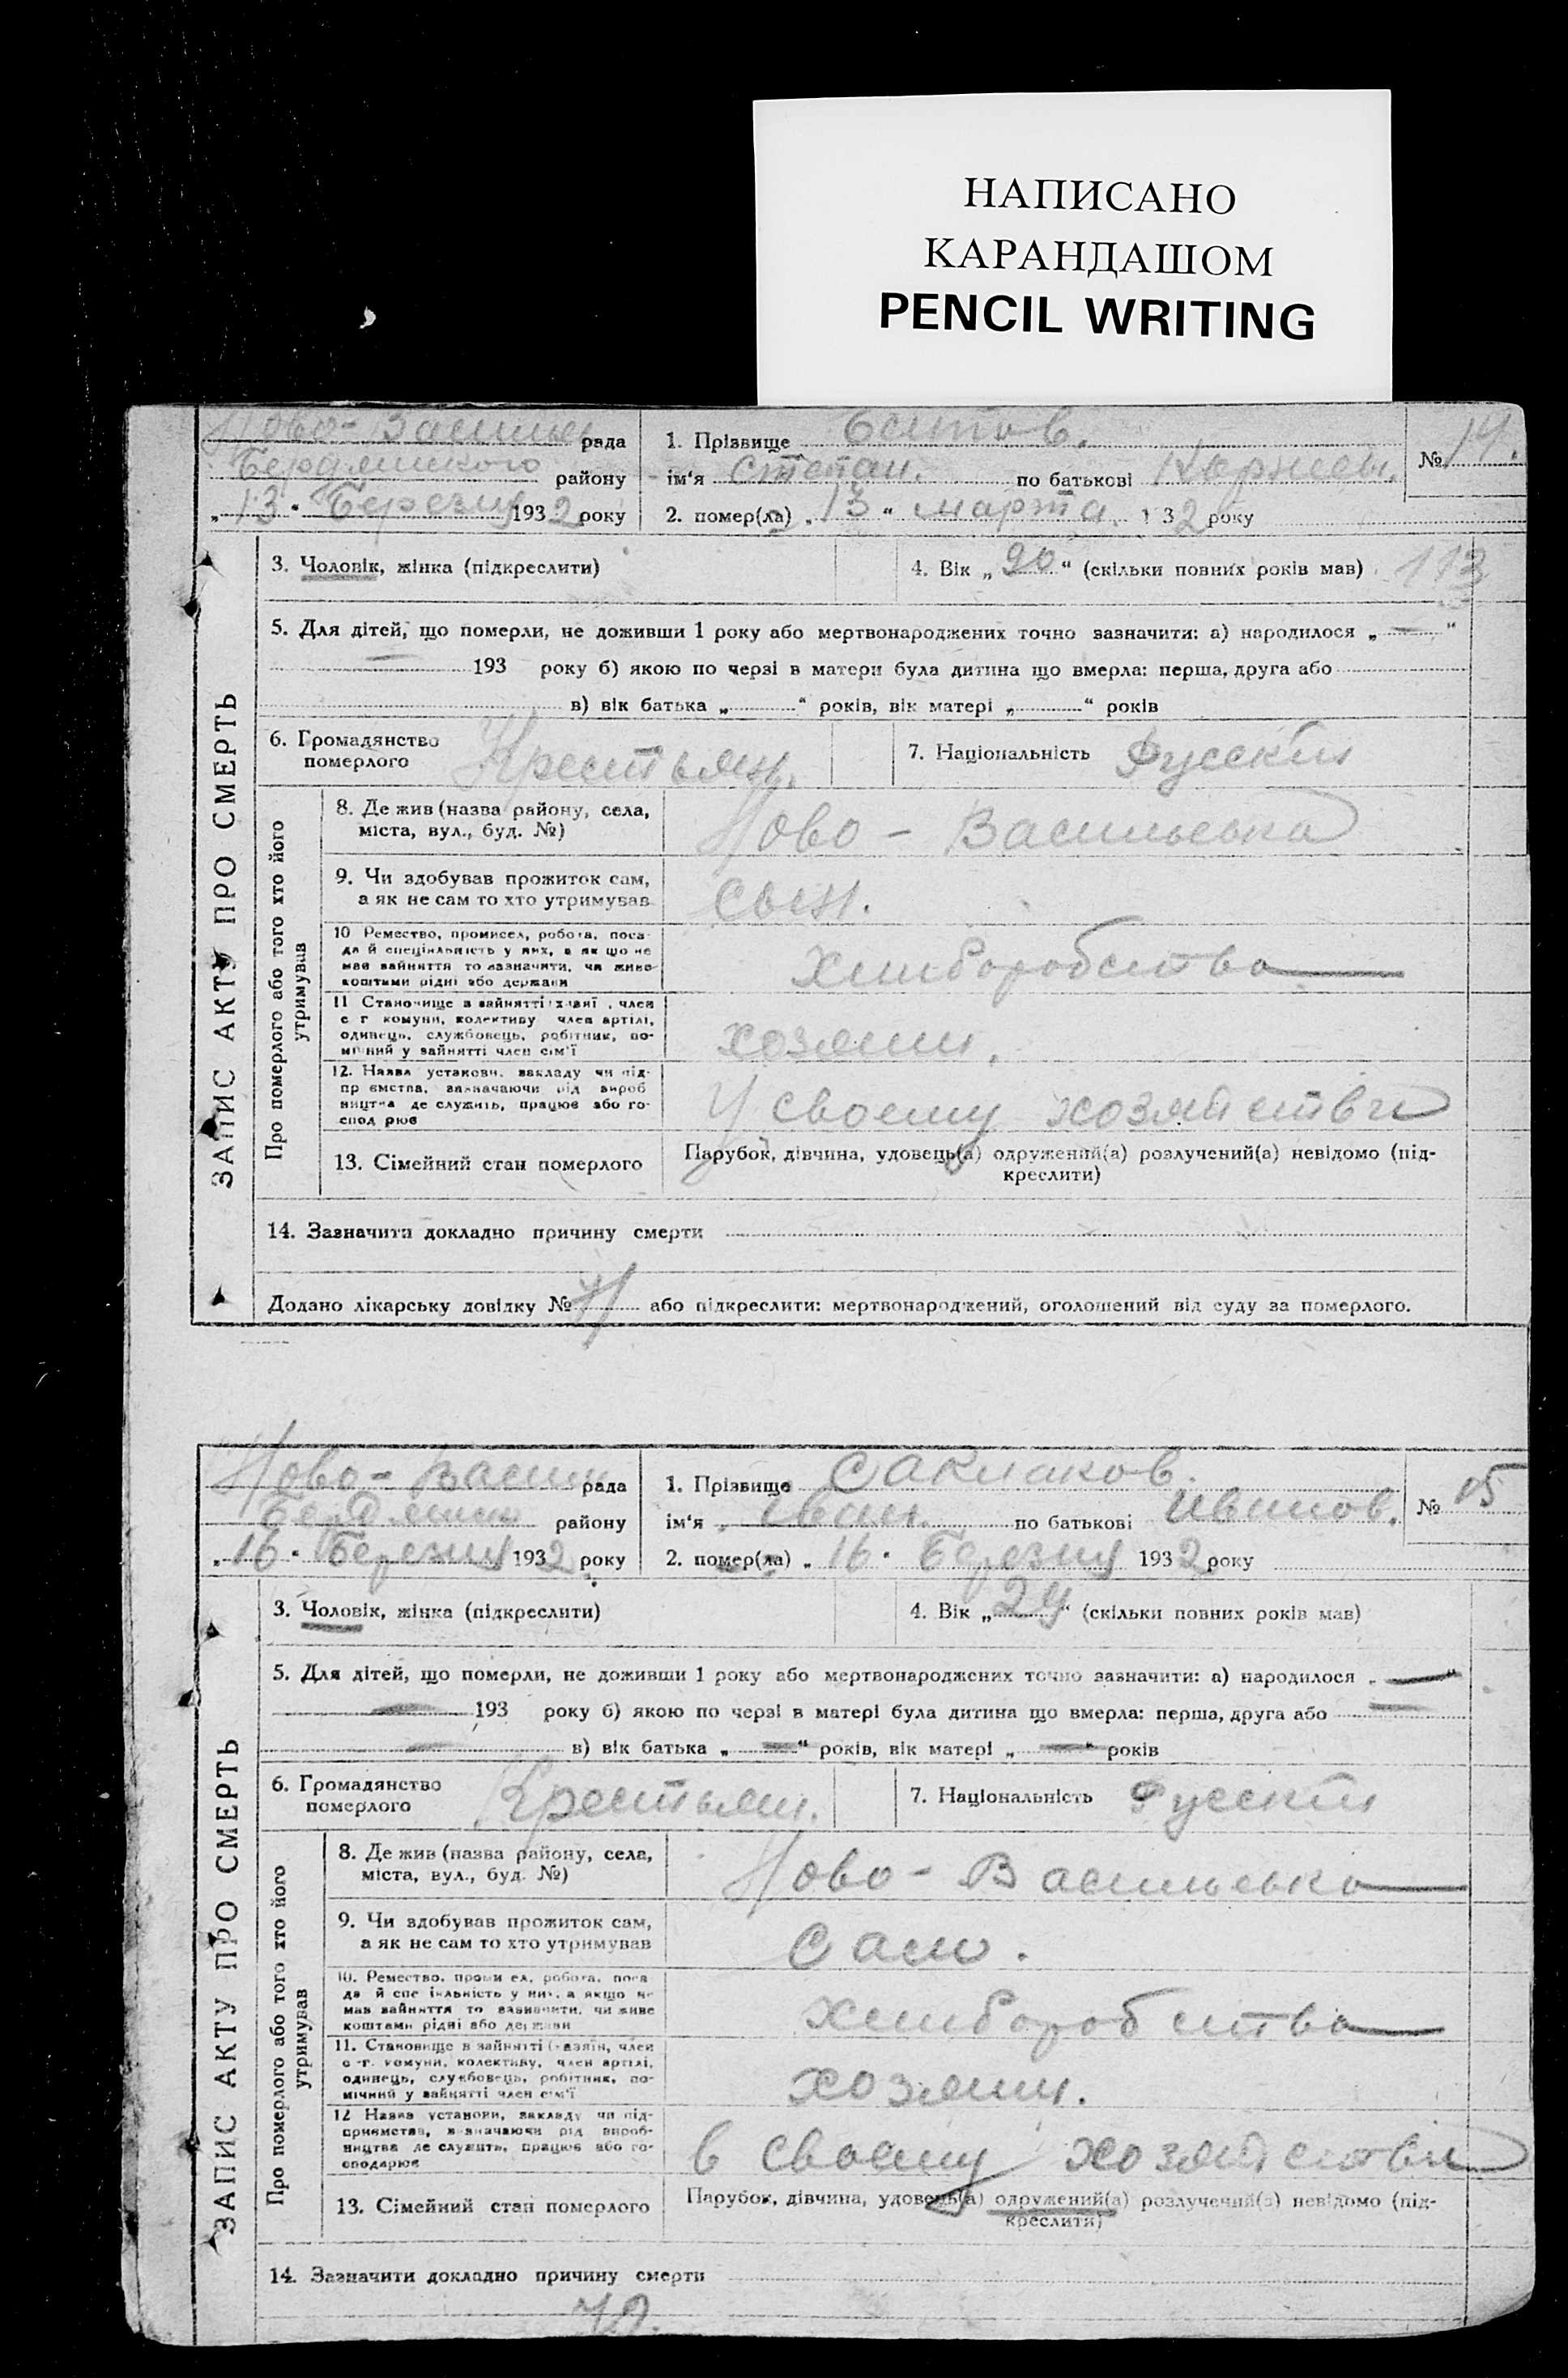 НАПИСАНО
КАРАНДАШОМ
PENCIL WRITING
Ново- рада
району
„13“ Березня 1932 року
1. Прізвище
ім'я Степан. по батькові
2. помер(ла) „13“ марта 1932 року
№ 14.
ЗАПИС АКТУ ПРО СМЕРТЬ
3. Чоловік, жінка (підкреслити)
4. Вік „90“ (скільки повних років мав) 113
5. Для дітей, що померли, не доживши 1 року або мертвонароджених точно зазначити: а) народилося „ — “
— 193 року б) якою по черзі в матери була дитина що вмерла: перша, друга або
в) вік батька „ “ років, вік матері „ “ років
6. Громадянство
померлого
Крестьян.
7. Національність Русский
Про померлого або того хто його
утримував
8. Де жив (назва району, села,
міста, вул., буд. №)
Ново - Васильевка
9. Чи здобував прожиток сам,
а як не сам то хто утримував
сын.
10 Ремество, промисел, робота, поса-
да й спеціяльність у них, а як що не
мав зайняття то зазначити, чи живе
коштами рідні або держави
Хлиборобство
11 Становище в зайнятті член
с г комуни, колективу член артілі,
одинець, службовець, робітник, по-
мічний у зайнятті член сім'ї
хозяин.
12. Назва установи, закладу чи під-
пр ємства, зазначаючи рід вироб
ництва де служить, працює або го-
спод рює
У своему хозяйстви
13. Сімейний стан померлого
Парубок, дівчина, удовець(а) одружений(а) розлучений(а) невідомо (під-
креслити)
14. Зазначити докладно причину смерти
Додано лікарську довідку № або підкреслити: мертвонароджений, оголошений від суду за померлого.
Ново- рада
району
„16“ Березня 1932 року
1. Прізвище Саклаков.
ім'я Иван. по батькові Иванов.
2. помер(ла) „16“ Березня 1932 року
№ 15
ЗАПИС АКТУ ПРО СМЕРТЬ
3. Чоловік, жінка (підкреслити)
4. Вік „24“ (скільки повних років мав)
5. Для дітей, що померли, не доживши 1 року або мертвонароджених точно зазначити: а) народилося „ — “
— 193 року б) якою по черзі в матері була дитина що вмерла: перша, друга або —
— в) вік батька „ — “ років, вік матері „ — “ років
6. Громадянство
померлого
Крестьян.
7. Національність Русский
Про померлого або того хто його
утримував
8. Де жив (назва району, села,
міста, вул., буд. №)
Ново - Васильевка
9. Чи здобував прожиток сам,
а як не сам то хто утримував
Сам.
10. Ремество, проми ел, робота, поса
да й спе іяльність у них, а якщо не
мав зайняття то зазначити, чи живе
коштами рідні або держави
Хлиборобство
11. Становище в зайнятті член
с-г. комуни, колективу, член артілі,
одинець, службовець, робітник, по-
мічний у зайнятті член сім'ї
хозяин.
12 Назва установи, закладу чи під-
приємства, зазначаючи рід вироб-
ництва де служить, працює або го-
сподарює
в своему хозяйстви
13. Сімейний стан померлого
Парубок, дівчина, удовець(а) одружений(а) розлучений(а) невідомо (під-
креслити)
14. Зазначити докладно причину смерти